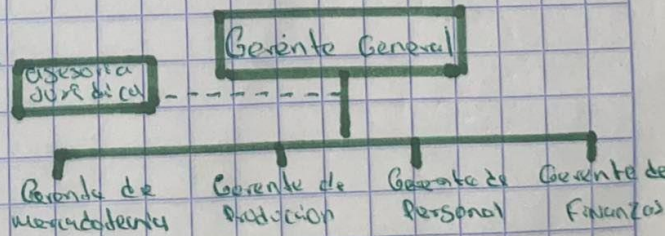 Gerente General
asesoria
Juridica
Gerente de
mercadotecnia
Gerente de
Producción
Gerente de
Personal
Gerente de
Finanzas